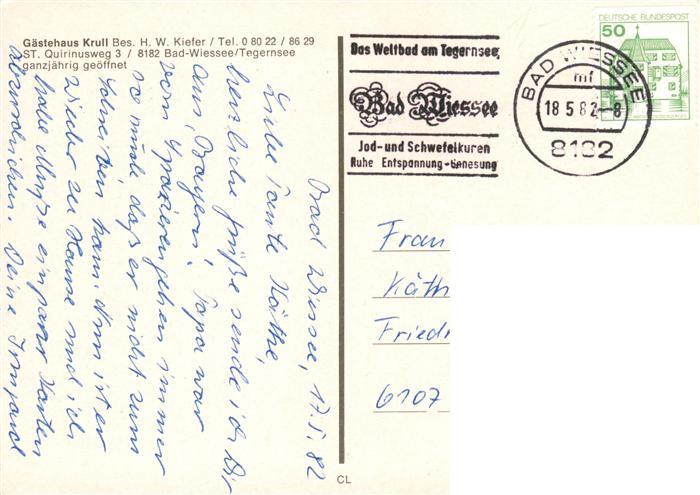 Gästehaus Krull Bes. H. W. Kiefer / Tel. 0 80 22 / 86 29
ST. Quirinusweg 3 / 8182 Bad-Wiessee/Tegernsee
ganzjährig geöffnet
Bad Wiessee, 17.5.82
Liebe Tante Käthe,
herzliche Grüße sende ich Dir
aus Bayern! Papa war
vom Spazierengehen immer
so müde daß er nicht zum
Schreiben kam. Nun ist er
wieder zu Hause und ich
habe Muße ein paar Karten
abzuschicken. Deine Irmgard
Das Weltbad am Tegernsee
Bad Wiessee
Jod- und Schwefelkuren
Ruhe Entspannung-Genesung
BAD WIESSEE
mf
18.5.82-8
8182
DEUTSCHE BUNDESPOST
50
Frau
Käth
Friedr
6107
CL